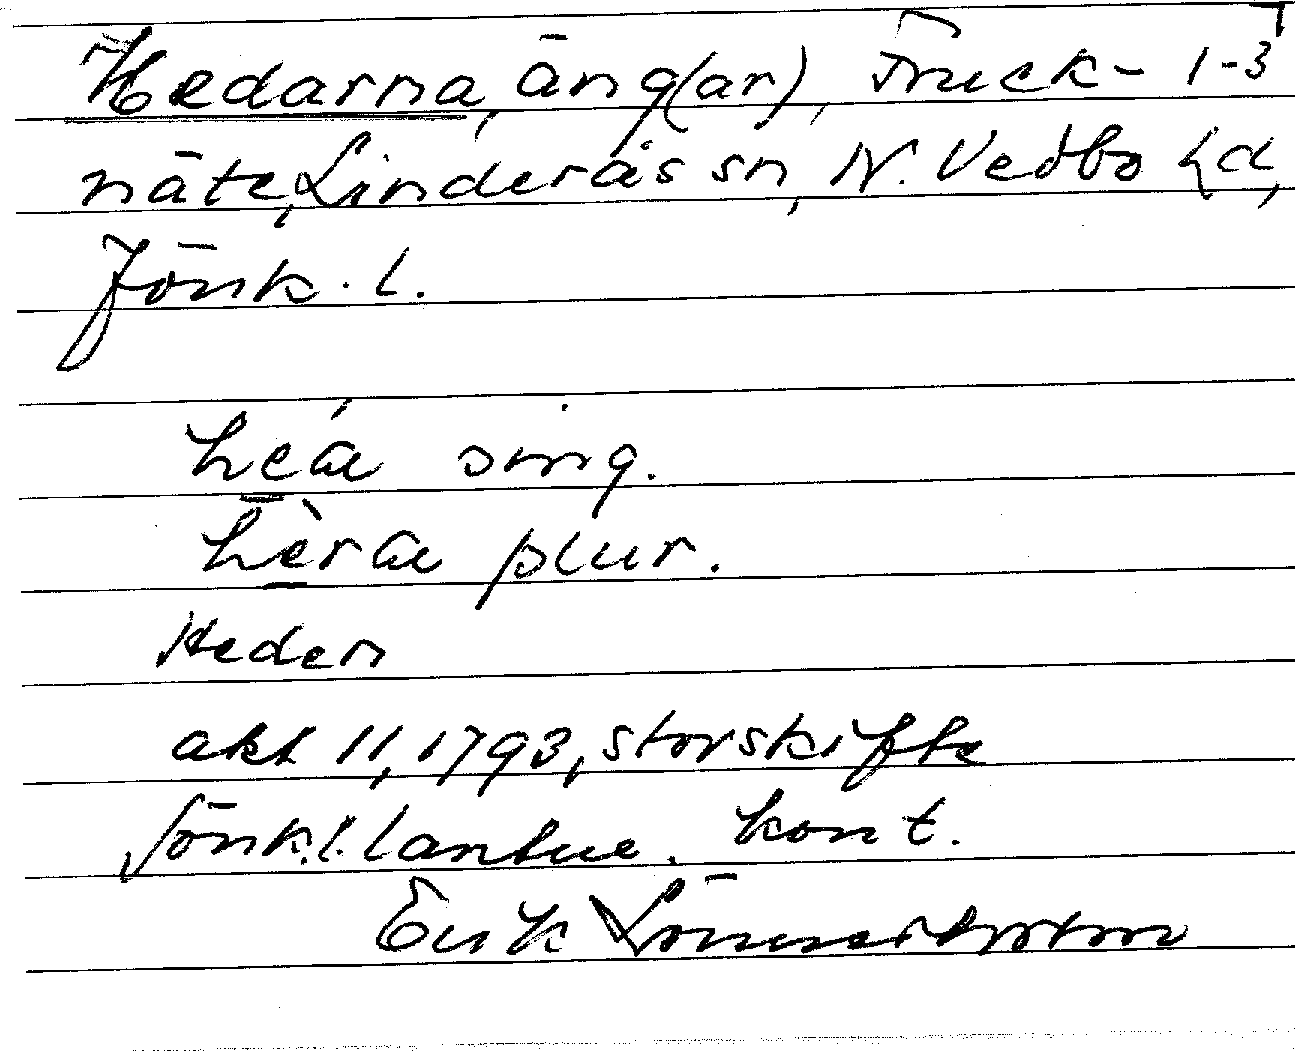 Hedarna, äng(ar), Fruck- 1-3
näte, Linderås sn, N. Vedbo hd,
Jönk. l.
heá sing.
hèra plur.
Heden
akt 11, 1793, storskifte
Jönk. l. lantue. kont.
Erik